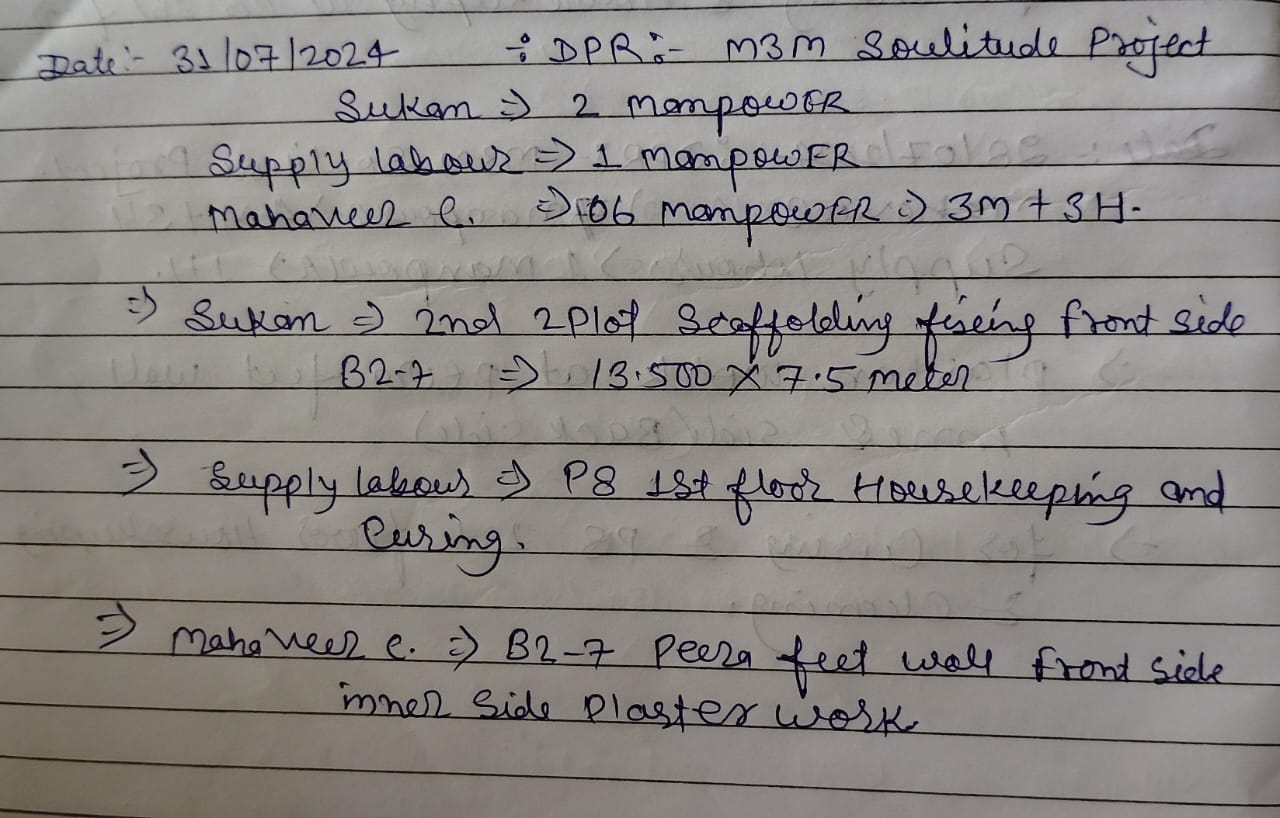 Date:- 31/07/2024 ÷ DPR:- M3M Soulitude Project
Sukan => 2 manpowER
Supply labour => 1 manpowER
Mahaveer C. => 06 manpowER => 3M + 3H.
=> Sukan => 2nd 2Plot Scaffolding fixing front side
B2-7 => 13.500 X 7.5 meter
=> Supply labour => P8 1st floor Housekeeping and
Curing.
=> Mahaveer C. => B2-7 Peera feet wall front side
inner side Plaster work